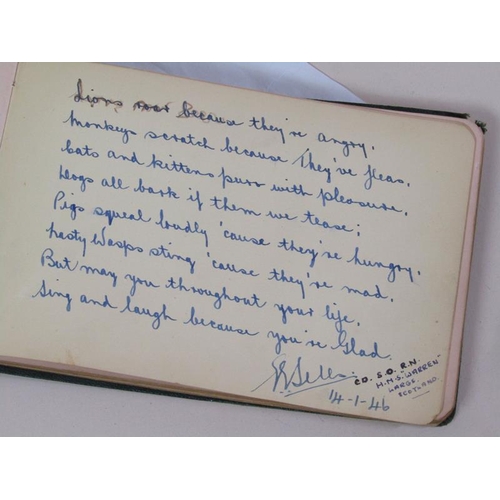 Lions roar because they're angry,
Monkeys scratch because They've fleas,
Cats and kittens purr with pleasure,
Dogs all bark if them we tease;
Pigs squeal loudly 'cause they're hungry,
Nasty Wasps sting 'cause they're mad.
But may you throughout your life,
Sing and laugh because you're Glad.
CD. S.O. R.N.
H.M.S. WARREN
LARGS
SCOTLAND.
14-1-46